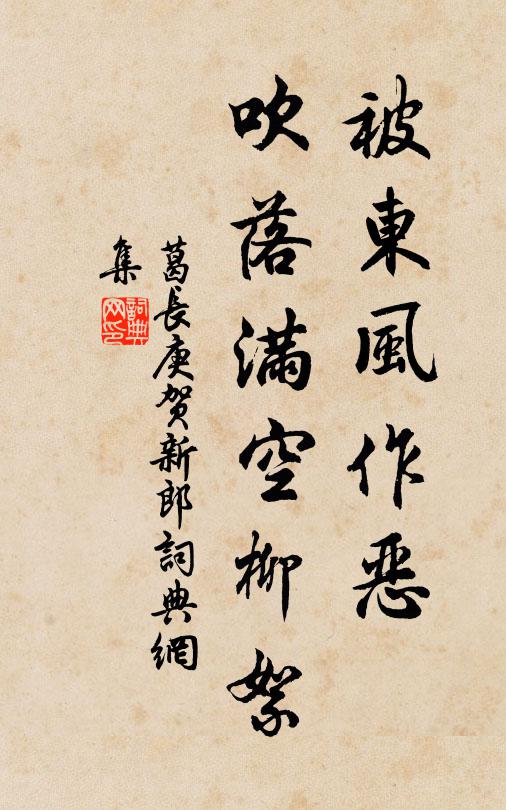 被東風作惡
吹落滿空柳絮
葛長庚賀新郎詞典網
集
詞典网印